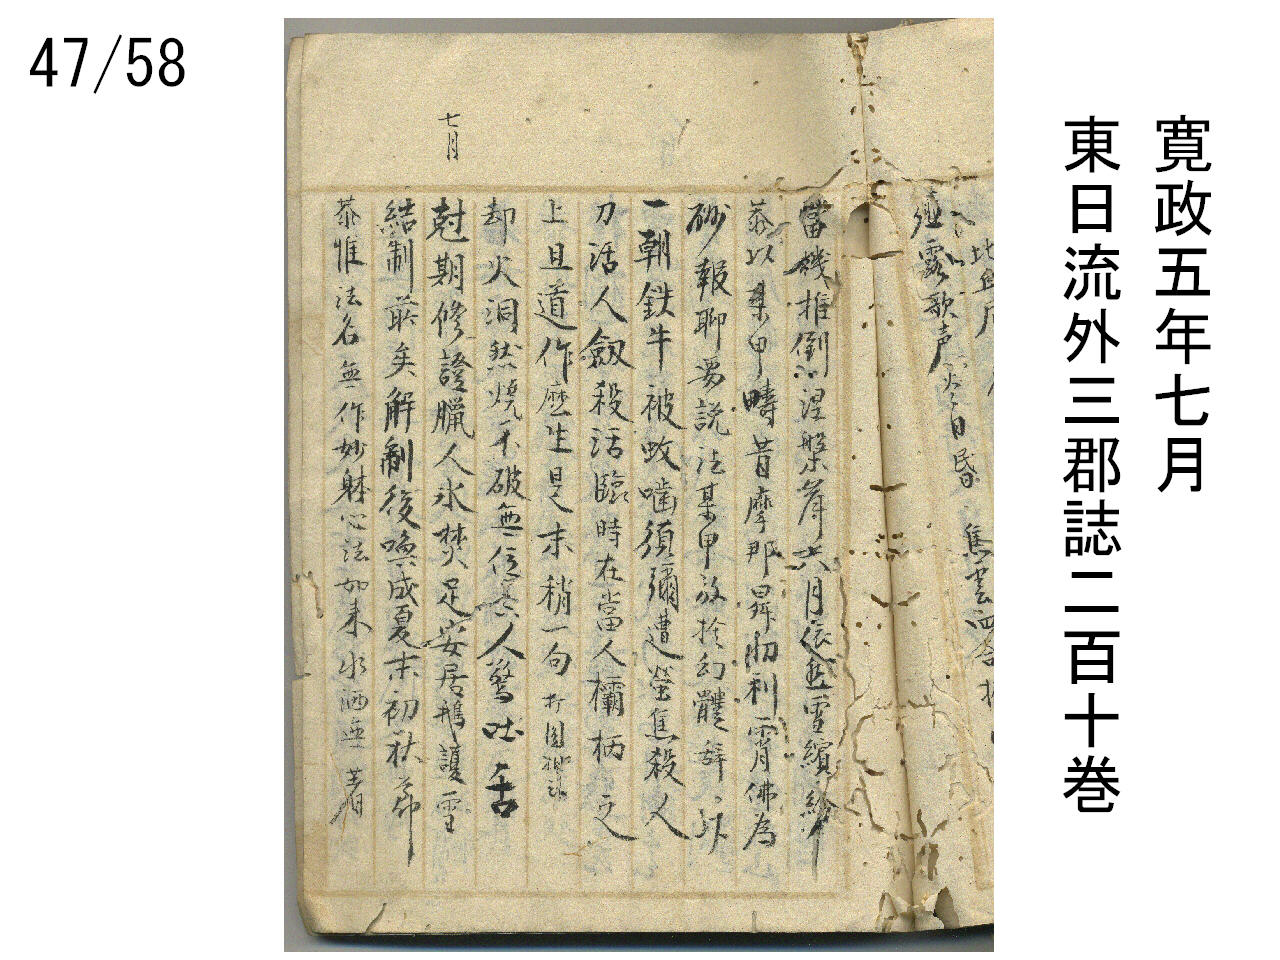 47/58
寛政五年七月
東日流外三郡誌二百十巻
露歌声
當機推倒涅槃岸六月依然雪繽紛
恭以某甲疇昔摩那昇忉利霄佛為
砂報聊要説法某甲放捨幻體辞以
一朝鉄牛被蚊噛須彌遭螢焦殺人
刀活人劔殺活臨時在當人欛柄之
上且道作麽生是末稍一句打圓相云
却火洞然焼不破無位真人驚吐舌
七月
尅期修證臘人氷焚足安居鵝護雪
結制最矣解制後喚成夏末初秋節
恭惟法名無作妙躰心法如来水洒無著